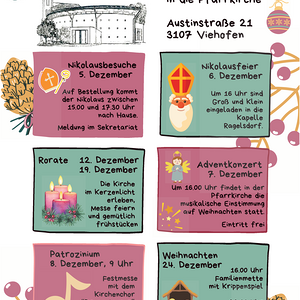 in die Pfarrkirche
Austinstraße 21
3107 Viehofen
Nikolausbesuche
5. Dezember
Auf Bestellung kommt
der Nikolaus zwischen
15.00 und 17:30 Uhr
nach Hause.
Meldung im Sekretariat
Nikolausfeier
6. Dezember
Um 16 Uhr sind
Groß und Klein
eingeladen in die
Kapelle
Ragelsdorf.
Rorate 12. Dezember
19. Dezember
Die Kirche
im Kerzenlicht
erleben,
Messe feiern
und gemütlich
frühstücken
Adventkonzert
7. Dezember
Um 16.00 Uhr findet in der
Pfarrkirche die
musikalische Einstimmung
auf Weihnachten statt.
Eintritt frei
Patrozinium
8. Dezember, 9 Uhr
Festmesse
mit dem
Kirchenchor
Weihnachten
24. Dezember
16.00 Uhr
Familienmette
mit Krippenspiel